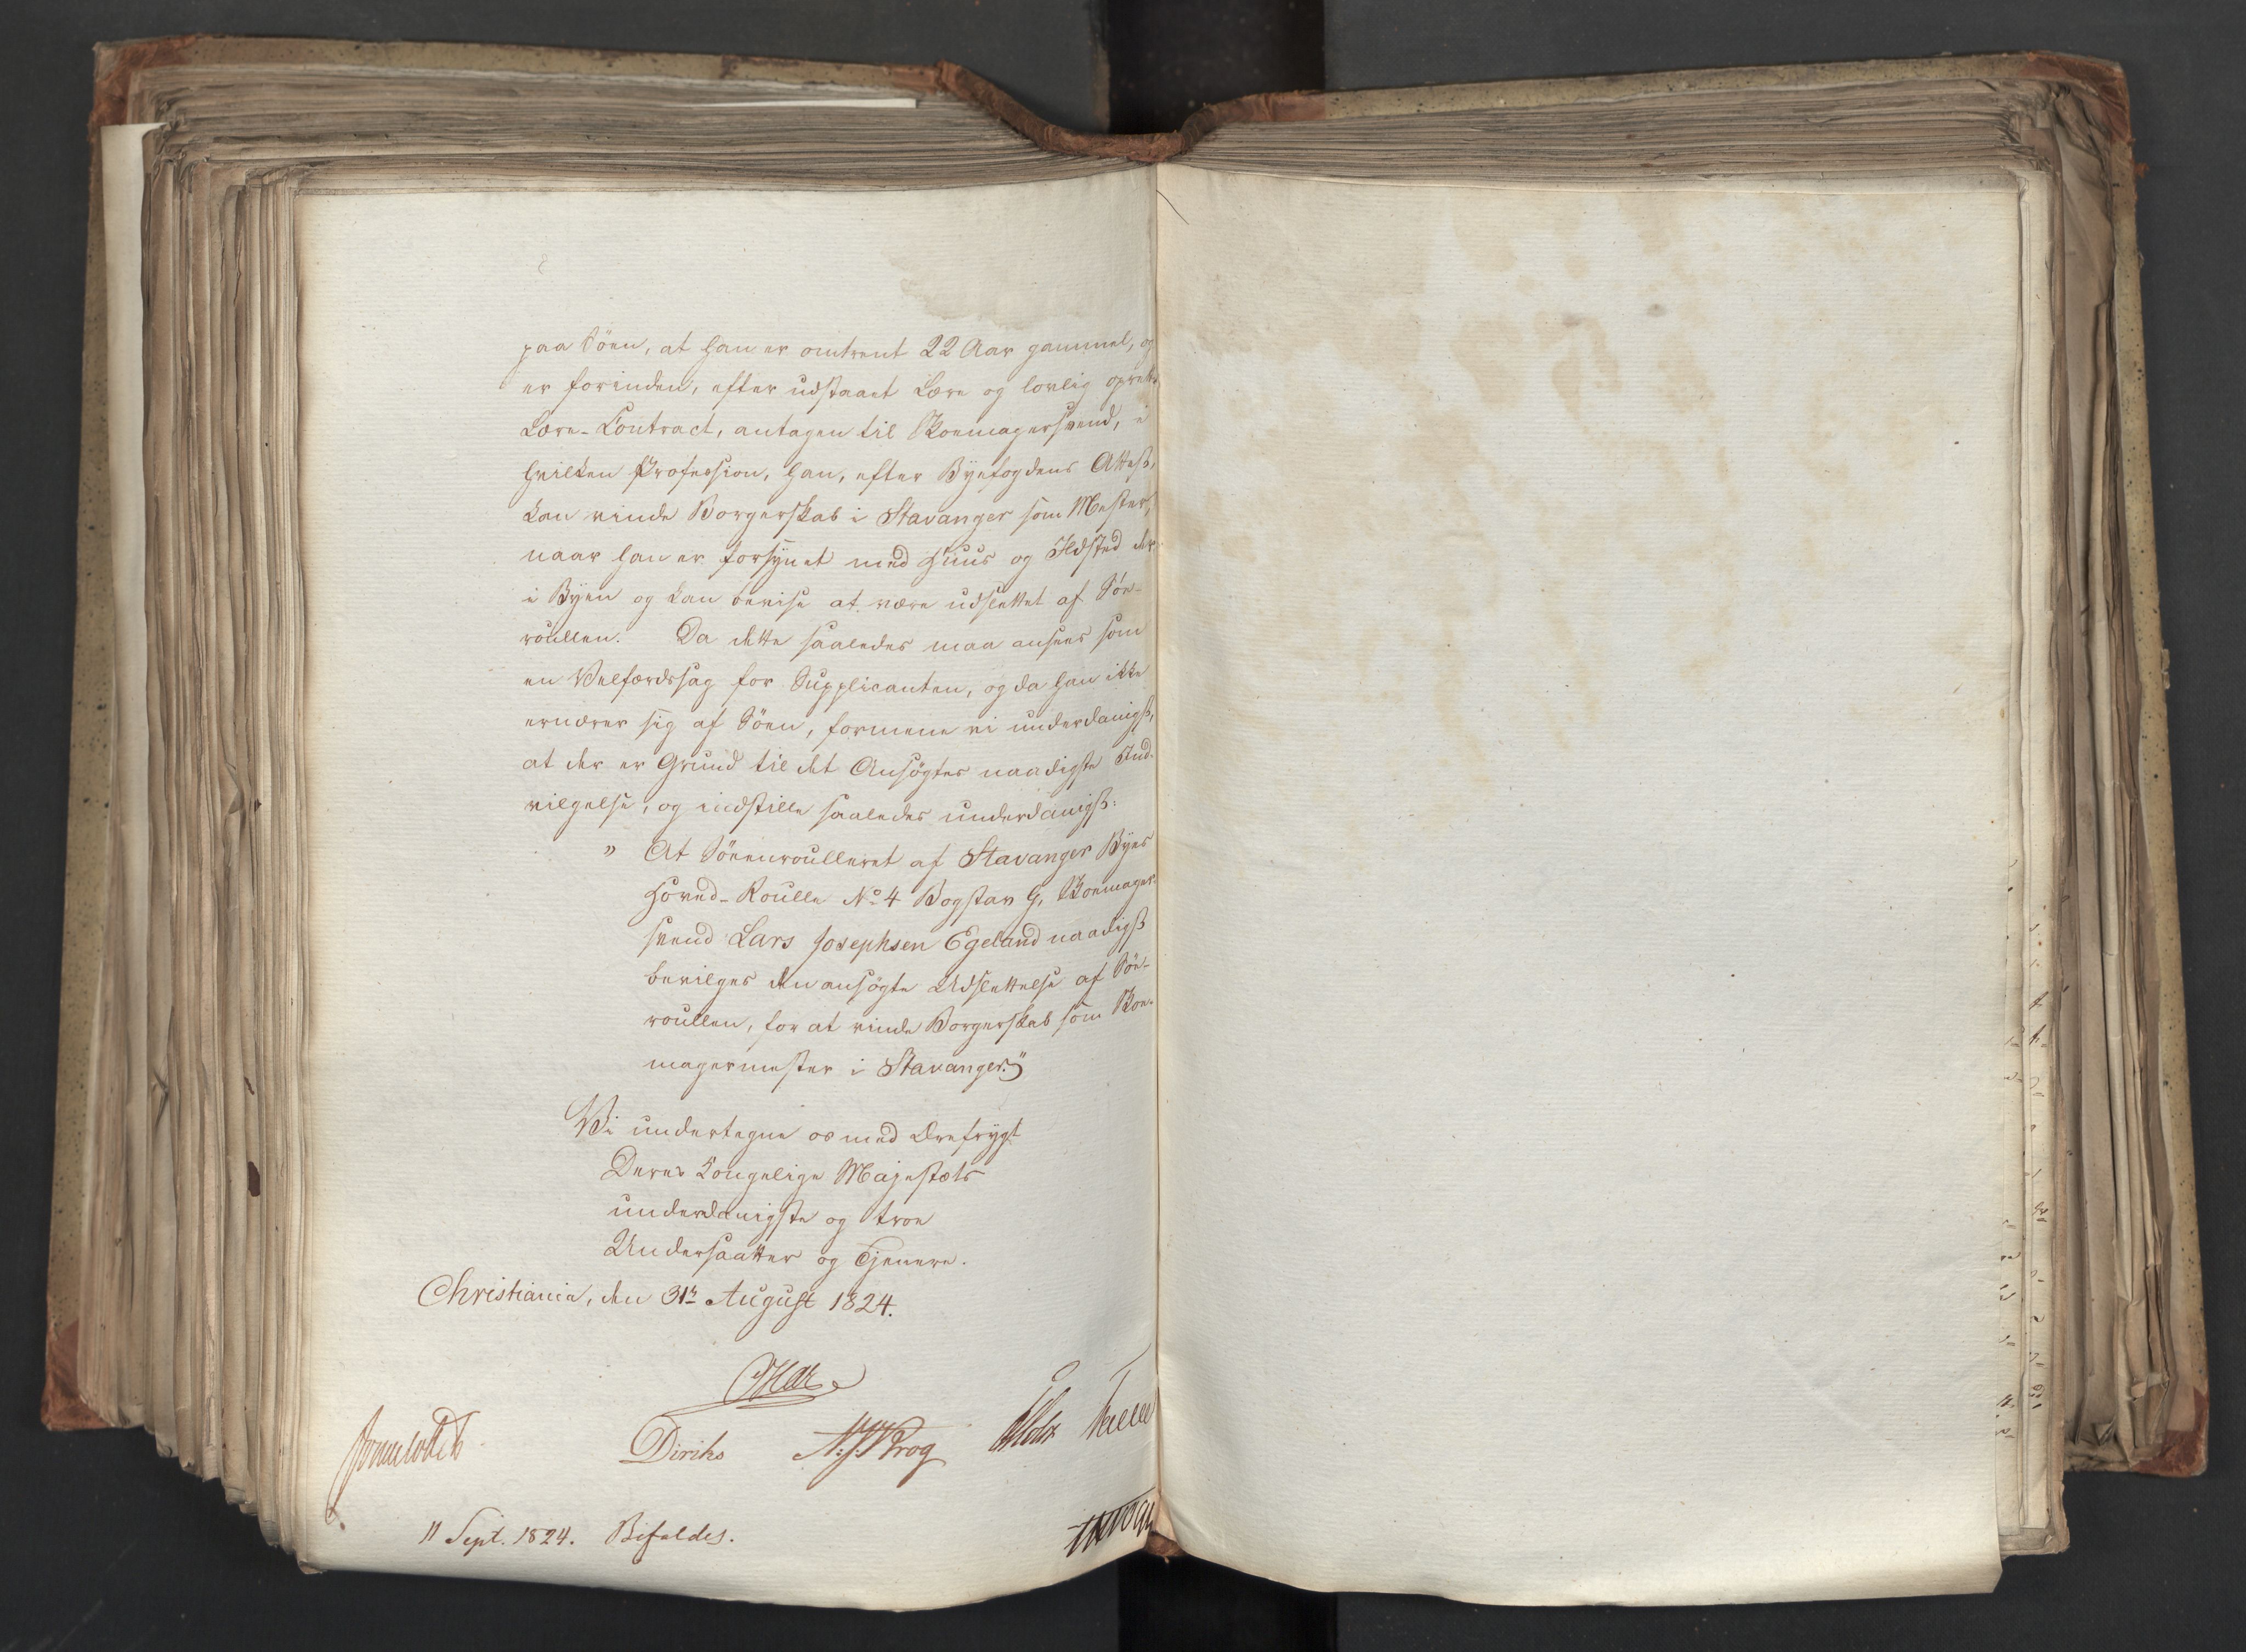 paa Söen, at han er omtrent 22 Aar gammel, og
er forinden, efter udstaaet Lære og lovlig oprettet
Lære-Contract, antagen til Skoemagersvend, i
hvilken Profession, han, efter Byefogdens Attest,
kan vinde Borgerskab i Stavanger som Mester,
naar han er forsynet med Huus og Ildsted der
i Byen og kan bevise at være udslettet af Söe-
roullen. Da dette saaledes maa ansees som
en Velfærdssag for Supplicanten, og da han ikke
ernærer sig af Söen, formene vi underdanigst,
at der er Grund til det Ansøgtes naadigste Ind-
vilgelse, og indstille saaledes underdanigst:
" At Söeenroulleret af Stavanger Byes
Hoved-Roulle No 4 Bogstav G, Skoemager-
svend Lars Josephsen Egeland naadigst
bevilges den ansøgte Udslettelse af Söe-
roullen, for at vinde Borgerskab som Skoe-
magermester i Stavanger."
Vi undertegne os med Ærefrygt
Deres Kongelige Majestæts
underdanigste og troe
Undersaatter og Tjenere.
Christiania, den 31te August 1824.
Diriks Krog
11 Sept. 1824. Bifaldes.